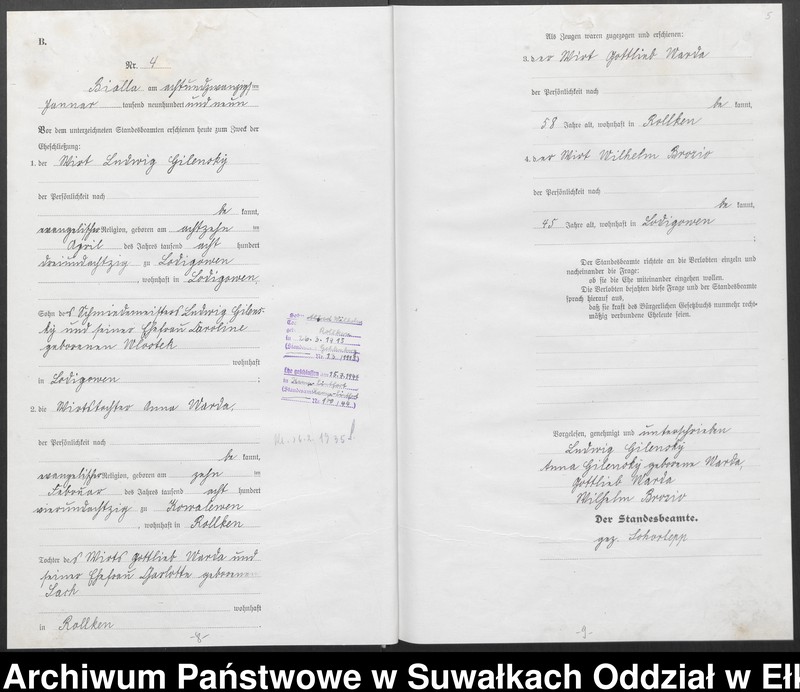 B.
Nr. 4
Bialla am achtundzwanzigsten
Januar tausend neunhundert und neun
Vor dem unterzeichneten Standesbeamten erschienen heute zum Zweck der
Eheschließung:
1. der Wirt Ludwig Gilensky
der Persönlichkeit nach
be kannt,
evangelischer Religion, geboren am achtzehn ten
April des Jahres tausend acht hundert
dreiundachtzig zu Lodigowen
, wohnhaft in Lodigowen,
Sohn des Schmiedemeisters Ludwig Gilens-
ky und seiner Ehefrau Caroline
geborenen Wlostek
wohnhaft
in Lodigowen ;
2. die Wirtstochter Anna Warda,
der Persönlichkeit nach
be kannt,
evangelischer Religion, geboren am zehn ten
Februar des Jahres tausend acht hundert
vierundachtzig zu Kowalewen
, wohnhaft in Rollken
Tochter des Wirts Gottlieb Warda und
seiner Ehefrau Charlotte geborenen
Sach
wohnhaft
in Rollken .
-8-
Rollken
26. 3. 1913
15.7.1944
5
Als Zeugen waren zugezogen und erschienen:
3. der Wirt Gottlieb Warda
der Persönlichkeit nach
be kannt,
58 Jahre alt, wohnhaft in Rollken
4. der Wirt Wilhelm Brozio
der Persönlichkeit nach
be kannt,
45 Jahre alt, wohnhaft in Lodigowen
;
Der Standesbeamte richtete an die Verlobten einzeln und
nacheinander die Frage:
ob sie die Ehe miteinander eingehen wollen.
Die Verlobten bejahten diese Frage und der Standesbeamte
sprach hierauf aus,
daß sie kraft des Bürgerlichen Gesetzbuchs nunmehr recht-
mäßig verbundene Eheleute seien.
Vorgelesen, genehmigt und unterschrieben
Ludwig Gilensky
Anna Gilensky geborene Warda,
Gottlieb Warda
Wilhelm Brozio
Der Standesbeamte.
gez.
-9-
Archiwum Państwowe w Suwałkach Oddział w Ełk